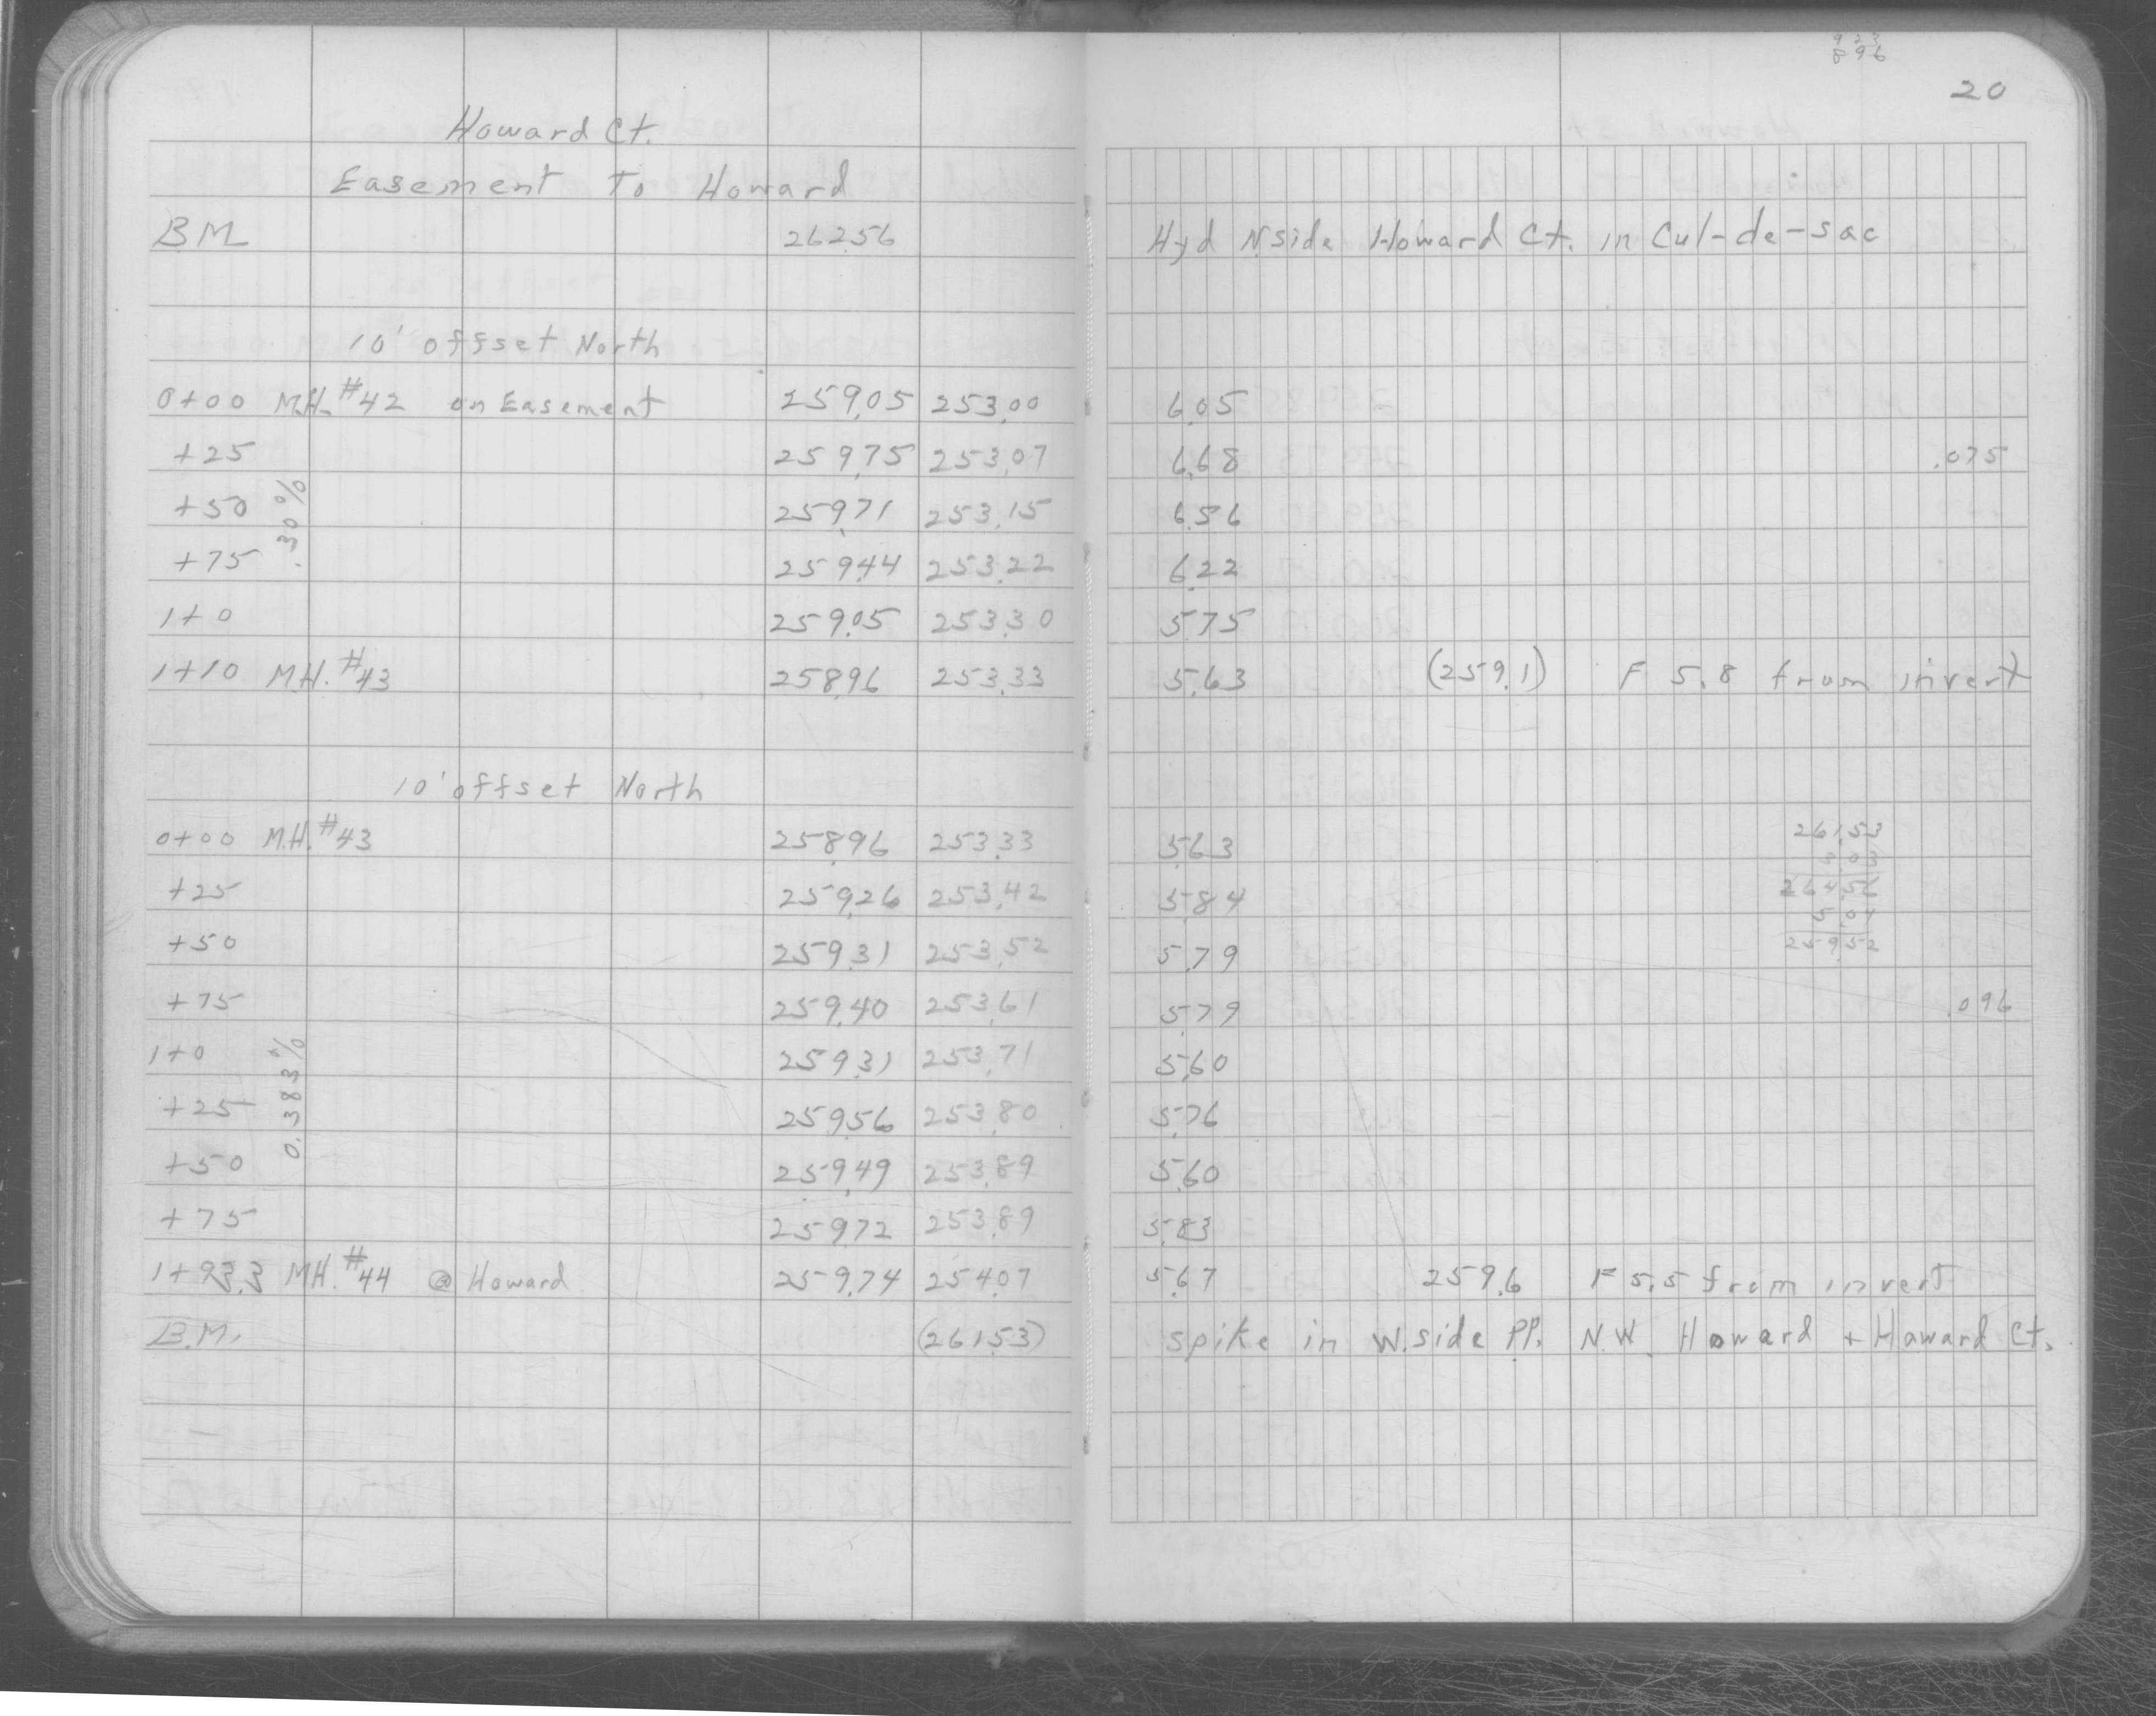 923
896
20
Howard Ct.
Easement To Howard
BM 262.56 Hyd N.side Howard Ct. in Cul-de-sac
10' offset North
0+00 M.H. #42 on Easement 259.05 253.00 6.05
+25 259.75 253.07 6.68 .075
+50 259.71 253.15 6.56
+75 259.44 253.22 6.22
.30%
1+0 259.05 253.30 5.75
1+10 M.H. #43 258.96 253.33 5.63 (259.1) F 5.8 from invert
10' offset North
0+00 M.H. #43 258.96 253.33 5.63 261.53
3.03
+25 259.26 253.42 5.84 264.56
5.04
+50 259.31 253.52 5.79 259.52
+75 259.40 253.61 5.79 .096
1+0 259.31 253.71 5.60
0.383%
+25 259.56 253.80 5.76
+50 259.49 253.89 5.60
+75 259.72 253.89 5.83
1+93.3 MH. #44 @ Howard 259.74 254.07 5.67 259.6 F 5.5 from invert
B.M. (261.53) Spike in W.side P.P. N.W. Howard + Howard Ct.